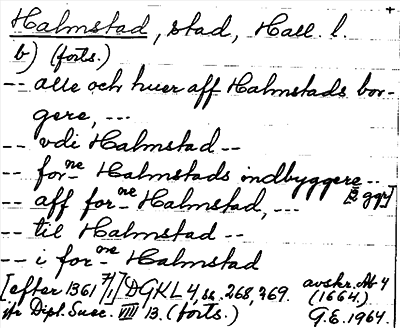 Halmstad, stad, Hall. l. +
b) (forts.)
-- alle och huer aff Halmstads bor-
gere, ---
-- vdi Halmstad --
-- forne Halmstads indbyggere --
-- aff forne Halmstad, --- [2 ggr]
-- til Halmstad --
-- i forne Halmstad
[efter 1361 7/1] DGKL 4, ss. 268, 269. avskr. Ab 4
(1664.)
jfr Dipl. Suec. VIII 13. (forts.) G.E. 1964.